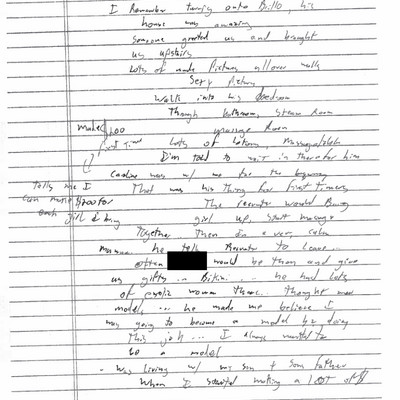 I Remember turning onto Brillo, his
house was amazing
Someone greeted us and brought
us upstairs
Lots of nude pictures all over walls
Sexy pictures
Walk into his bedroom
Through bathroom, steam Room
massage Room
makes $200
first time
Lots of lotions, Massage table
I'm told to wait in there for him
Caroline was w/ me for the beginning
tells me I
can make $200 for
each girl I bring
That was his thing for first timers
The recruiter would Bring
girl up, start massage
Together Then in a very calm
manner he tells Recruiter to Leave...
often would be there and give
us gifts.. Bikini... he had lots
of exotic women there.. thought were
models... he made me believe I
was going to become a model by doing
This job... I always wanted to
be a model
- was Living w/ my son + son father
When I started making a LOT of $